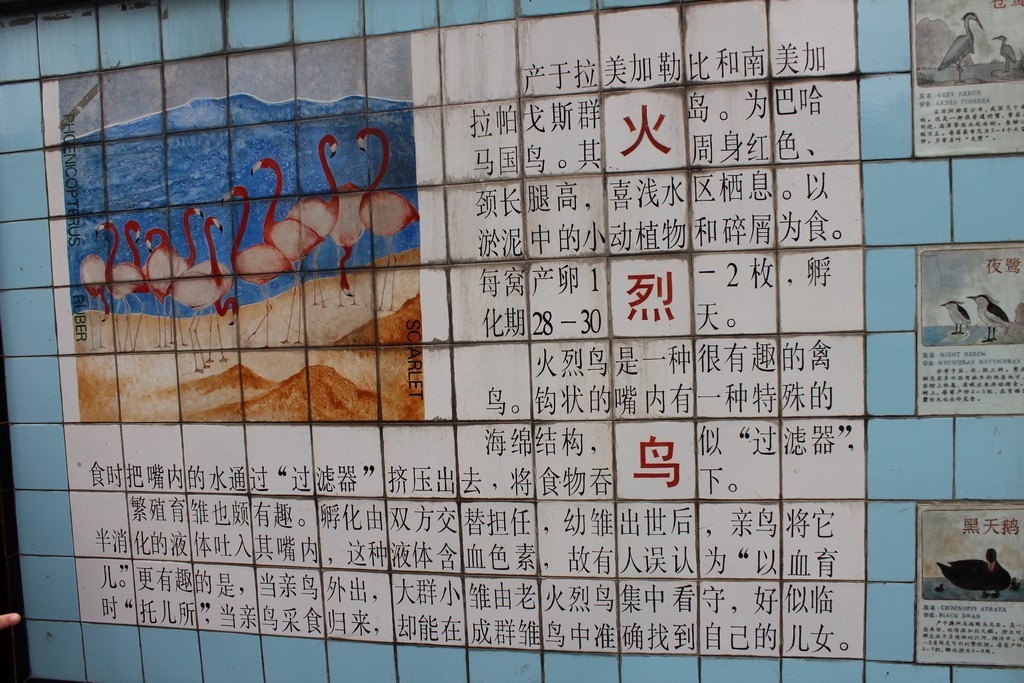 火烈鸟
产于拉美加勒比和南美加
拉帕戈斯群岛。为巴哈
马国鸟。其周身红色、
颈长腿高，喜浅水区栖息。以
淤泥中的小动植物和碎屑为食。
每窝产卵1－2枚，孵
化期28－30天。
火烈鸟是一种很有趣的禽
鸟。钩状的嘴内有一种特殊的
海绵结构，似“过滤器”，
食时把嘴内的水通过“过滤器”挤压出去，将食物吞下。
繁殖育雏也颇有趣。孵化由双方交替担任，幼雏出世后，亲鸟将它
半消化的液体吐入其嘴内，这种液体含血色素，故有人误认为“以血育
儿”。更有趣的是，当亲鸟外出，大群小雏由老火烈鸟集中看守，好似临
时“托儿所”，当亲鸟采食归来，却能在成群雏鸟中准确找到自己的儿女。
PHOENICOPTRUS RUBER
SCARLET
苍鹭
英名：GREY HERON
学名：ARDEA CINEREA
夜鹭
英名：NIGHT HERON
学名：NYCTICORAX NYCTICORAX
黑天鹅
英名：BLACK SWAN